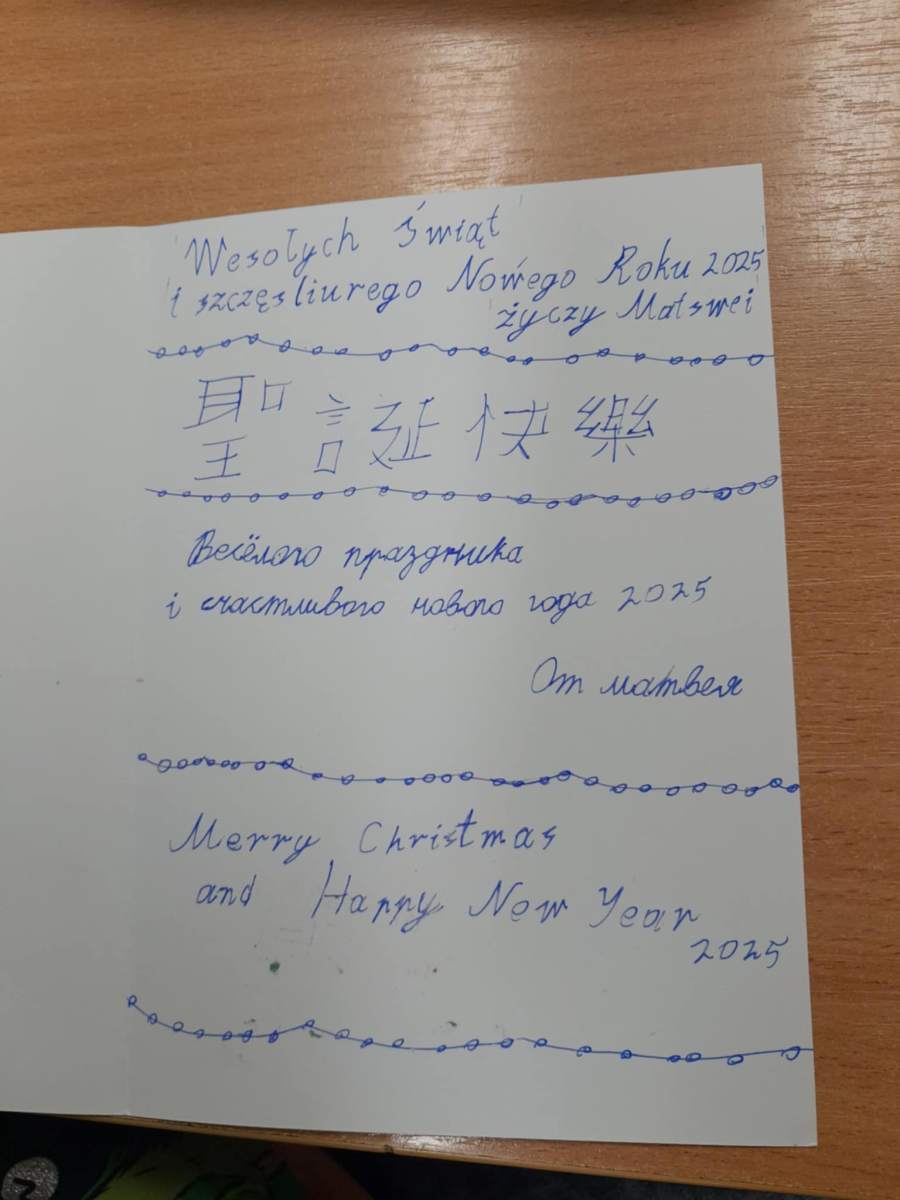 Wesołych Świąt
i szczęsliurego Nowego Roku 2025
życzy Matswei
聖誕快樂
Весёлого праздника
і счастливого нового года 2025
От матвея
Merry Christmas
and Happy New Year
2025